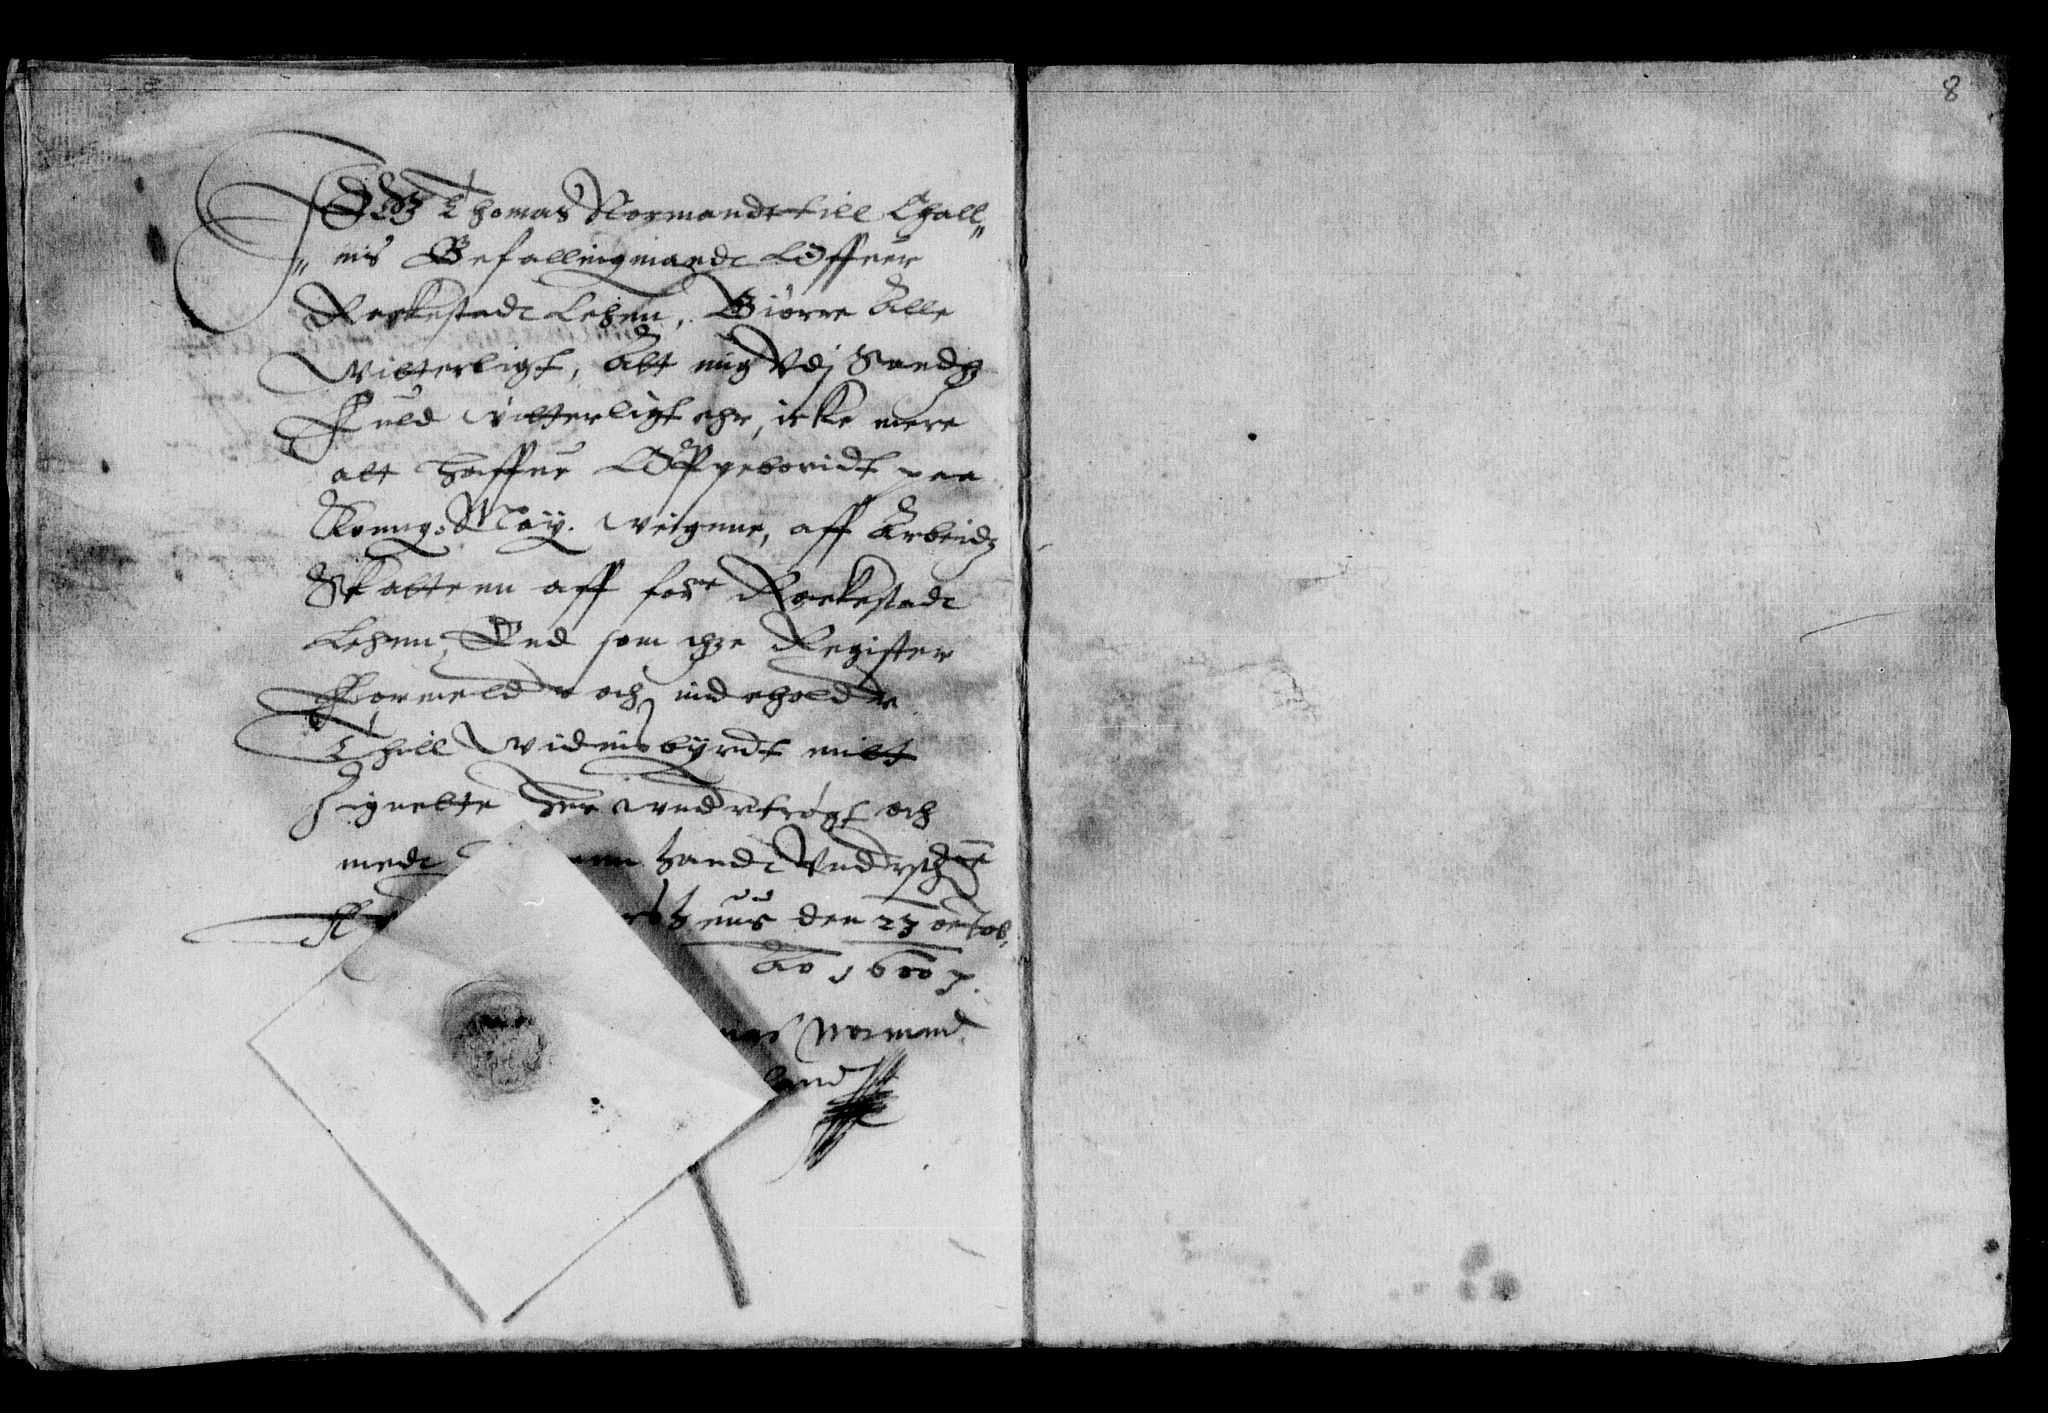 8
Jegh Thomas Normandt till Chall„
„nis Befallingmandt Offuer
Reckestadt Lehen, Giørre Alle
Witterligt, Att mig Vdj Sandhz
Fuld vitterligt ehr, icke mere
att Haffue Oppeboridt paa
Kong: May. veigene, aff Arbeidz
Skatten aff for:ne Reckestadt
Lehen, End som thze Register
Formelder och indeholder
Thill vidnisbyrdt mitt
Zignette her vnder trøgt och
medt handt Vnderschr
huus den 23 octob.
Ao 1607.
Normand